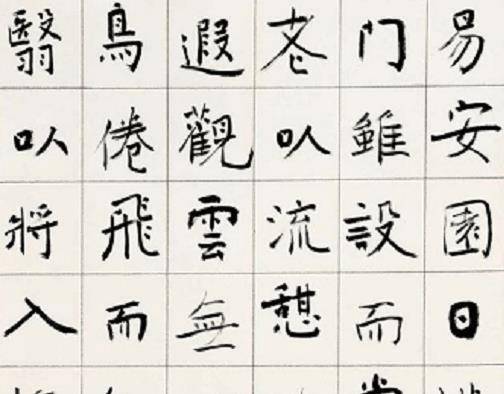 易安園日
门雖設而
老以流憩
遐觀雲無
鳥倦飛而
翳以將入